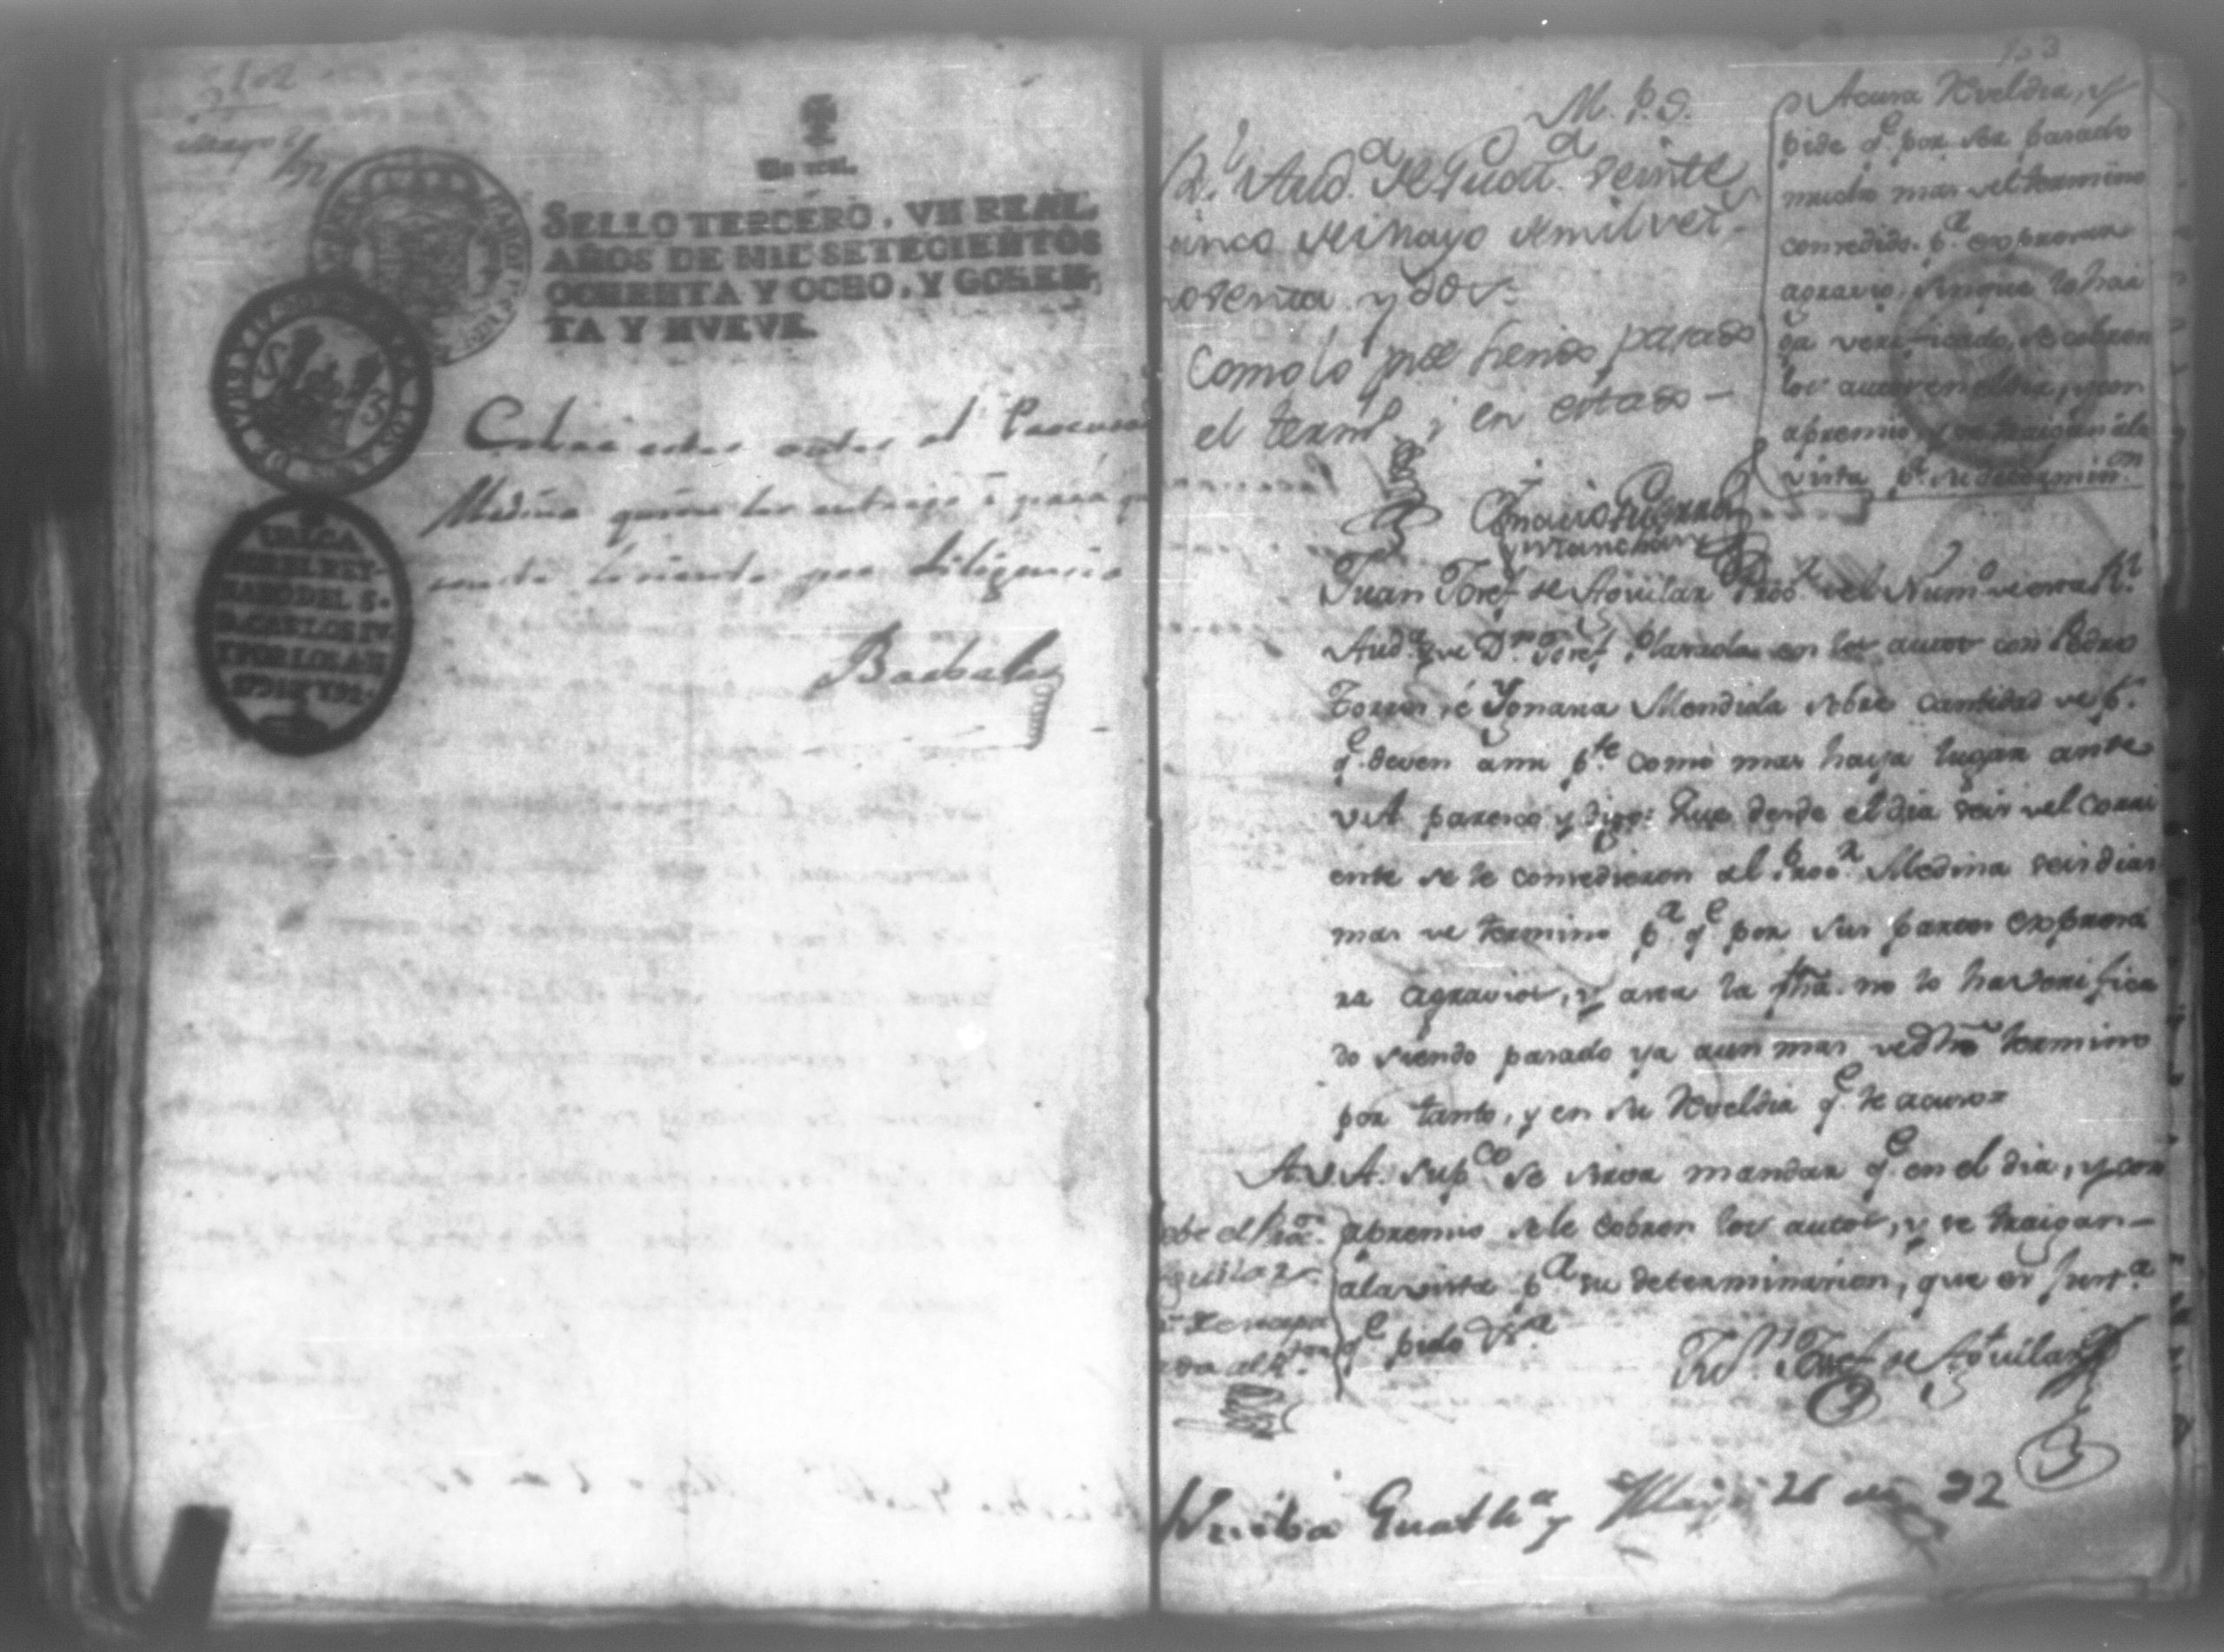 102
Mayo
Un real.
SELLO TERCERO, UN REAL,
AÑOS DE MIL SETECIENTOS
OCHENTA Y OCHO, Y OCHEN-
TA Y NUEVE.
VALGA
POR EL REY-
NADO DEL S.
D. CARLOS IV.
Y POR LOS AÑ
Cobré estos autos al Procurad
Medina quien los entregó y para q
conste lo siento por diligencia
Barbales
103
M. P. S.
Rl. Audª de Guatª veinte y
cinco de Mayo de mil set.
noventa y dos
Como lo pide siendo pasado
el termº, y en estado
Ignacio Guerra
y Marchan
Acusa Reveldia, y
pide qe por ser pasado
mucho mas del termino
concedido pª expresar
agravio, sin que lo hai
ga verificado, se cobren
los autos en el dia, y con
apremio, y se traigan ala
vista pª su determinon
Juan Josef de Aguilar Procr del Numº de esta Rl
Audª y de Dn Josef Plazaola en los autos con Pedro
Torres, é Ygnacia Mendida sobre cantidad de ps
qe deven a mi pte como mas haya lugar ante
V.A. paresco y digo: Que desde el dia seis del corri
ente se le concedieron al Procr Medina seis dias
mas de termino pª qe por sus partes expresa
ra agravios, y asta la fha no lo ha verifica
do siendo pasado ya aun mas de dho termino
por tanto, y en su Reveldia qe le acuso=
A.V.A. supco se sirva mandar qe en el dia, y con
apremio sele cobren los autos, y se traigan
ala vista pª su determinacion, que es justª
qe pido Vª
Jun Josef de Aguilar
ebe el Proc.
guilar
Guathª y Mayo 26 de 92